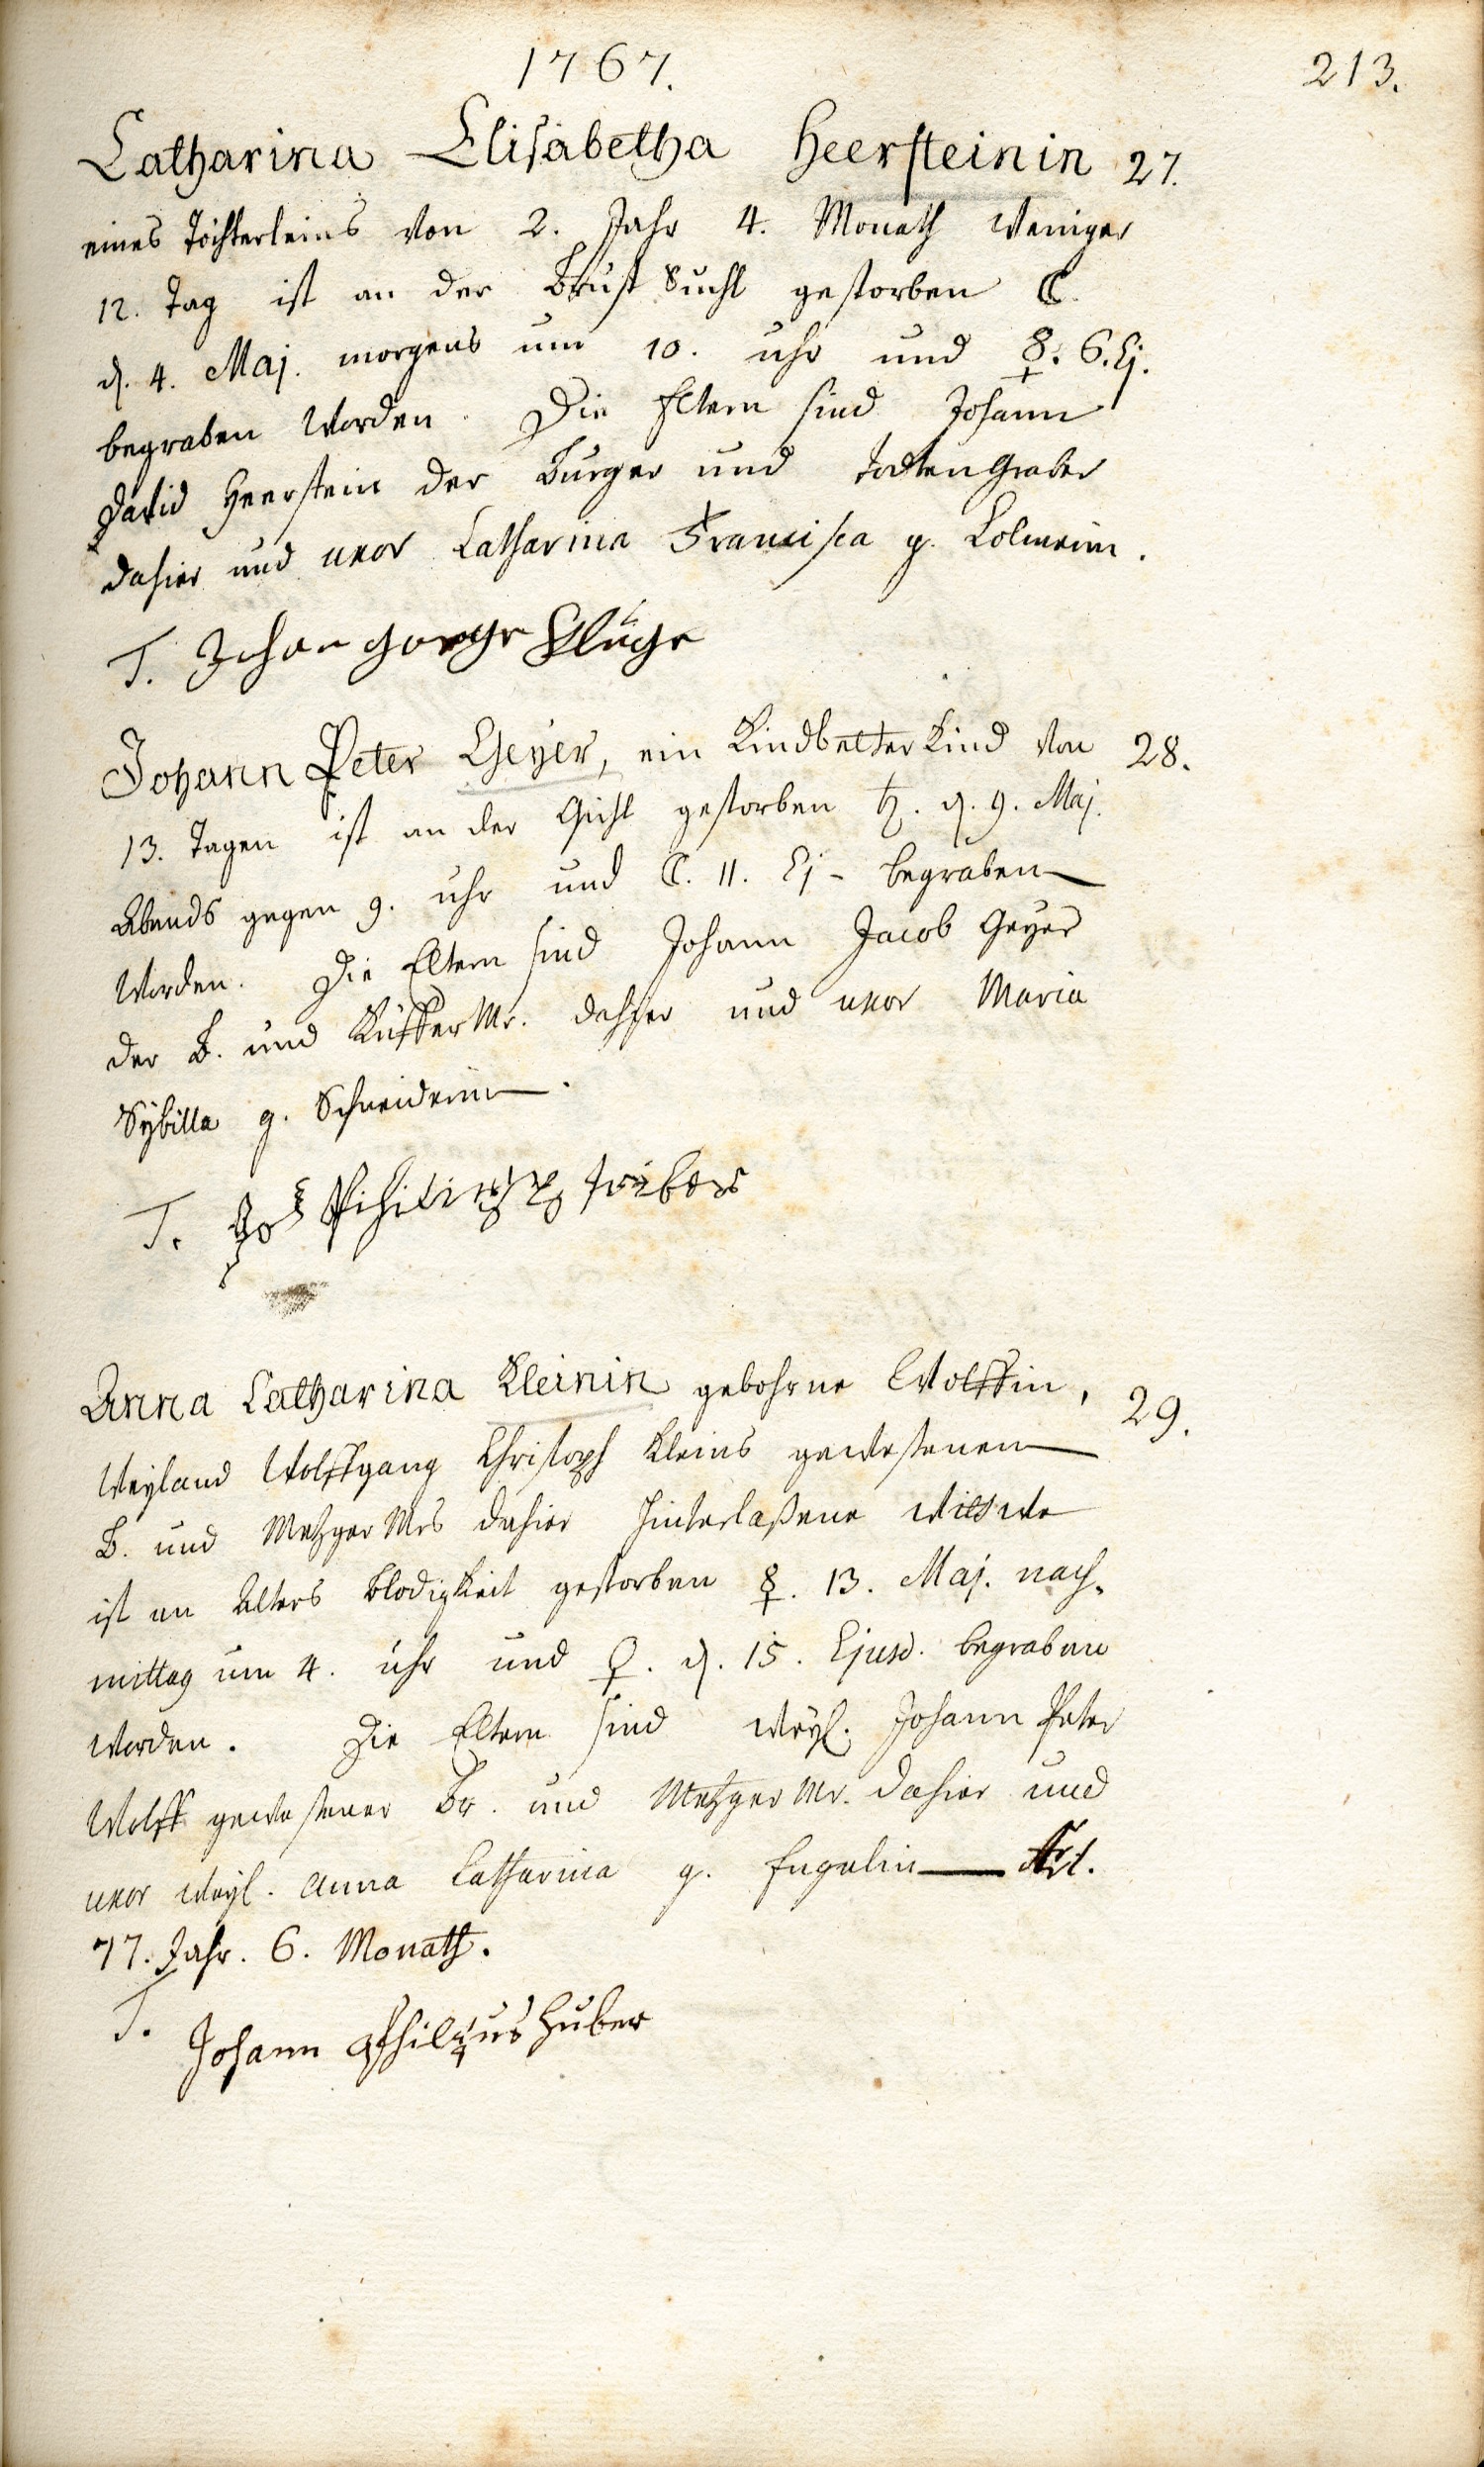 1767.
213.
Catharina Elisabetha Heersteinin 27.
eines Töchterleins von 2. Jahr 4. Monath weniger
12. Tag ist an der Brust Sucht gestorben ☾.
d. 4. Maj. morgens um 10. uhr und ☿. 6. Ej.
begraben worden. Die Eltern sind Johann
David Heerstein der Burger und Todtengraber
dahier und uxor Catharina Francisca g.
T. Johan George Kluge
Johann Peter Geyer, ein Kindbetter Kind von 28.
13. Tagen ist an der Gicht gestorben ♄. d. 9. Maj.
Abends gegen 9. uhr und ☾. 11. Ej. begraben
worden. Die Eltern sind Johann Jacob Geyer
der B. und Küffer Mr. dahier und uxor Maria
Sybilla g. Schneiderin.
T. Joh Philipp
Anna Catharina Kleinin gebohrne Wolffin, 29.
Weyland Wolffgang Christoph Kleins gewesenen
B. und Metzger Mrs dahier hinterlaßene Wittwe
ist an Alters Blödigkeit gestorben ☿. 13. Maj. nach-
mittag um 4. uhr und ♀. d. 15. Ejusd. begraben
worden. Die Eltern sind weyl. Johann Peter
Wolff gewesener Br. und Metzger Mr. dahier und
uxor weyl. Anna Catharina g. Engelin
77. Jahr. 6. Monath.
T.
Johann Huber